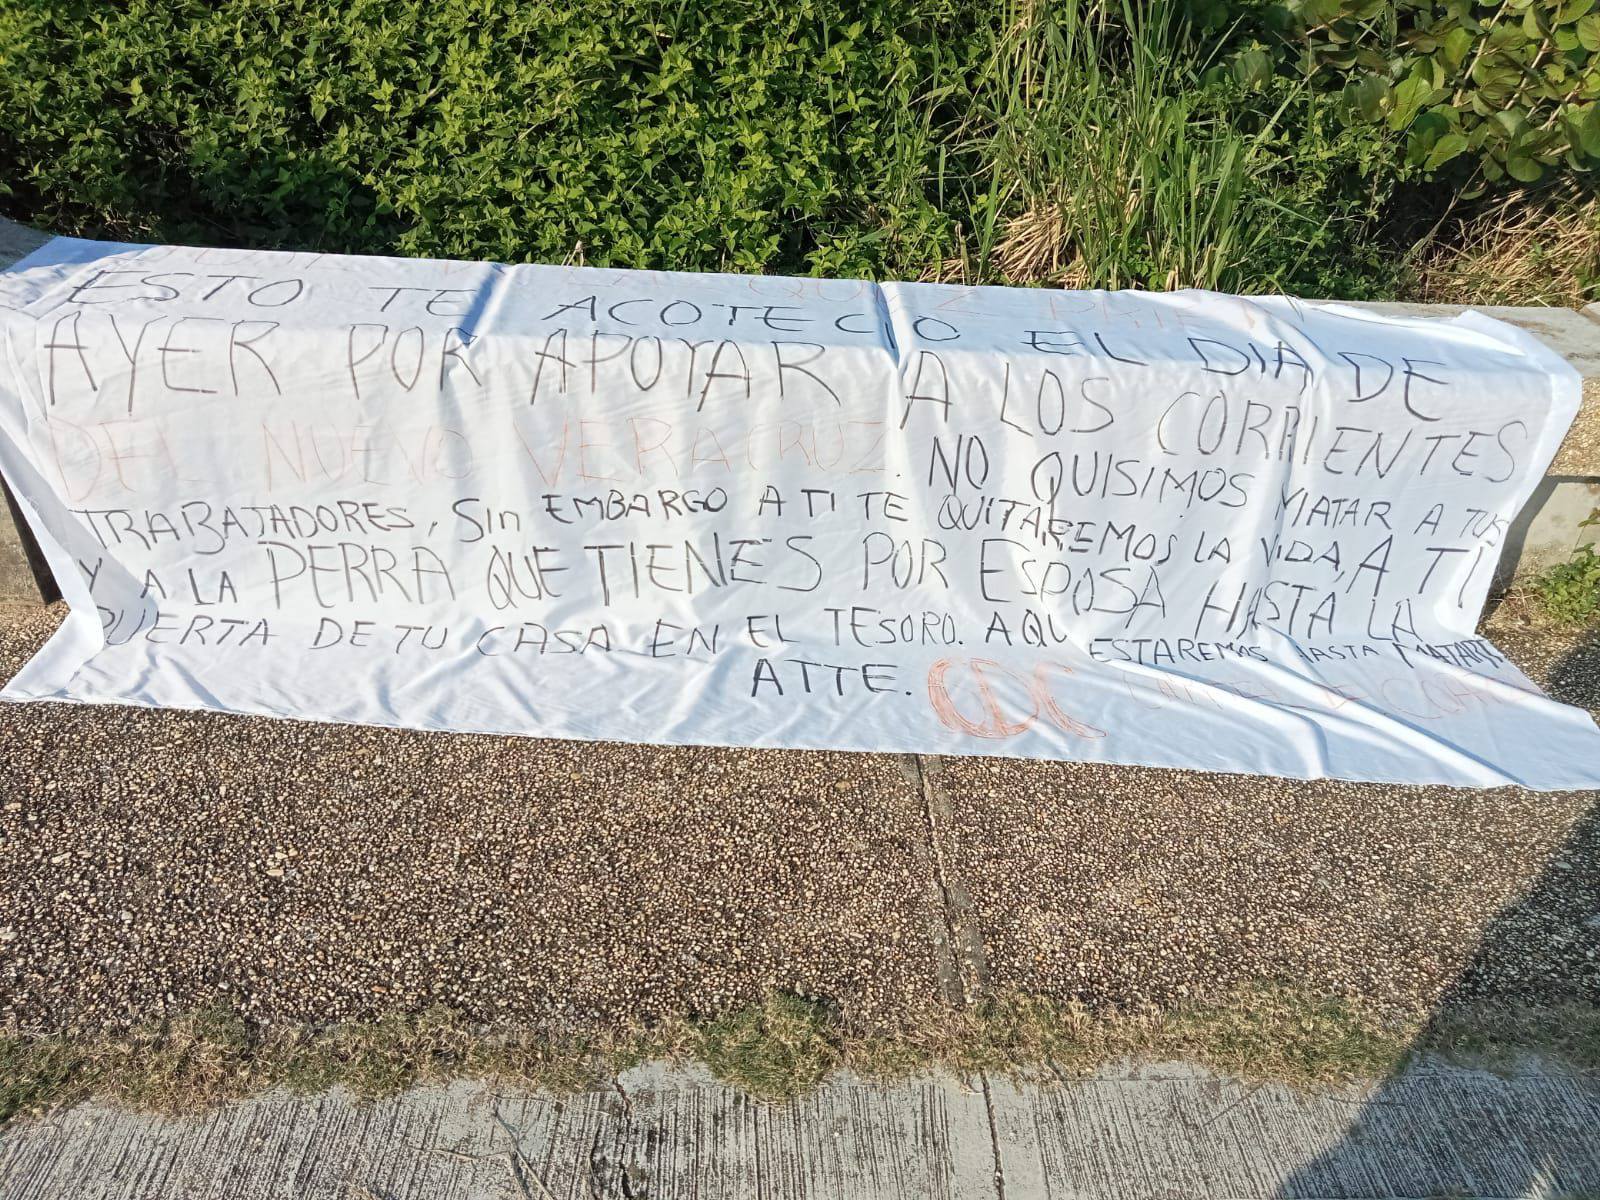 ESTO TE ACOTECIO EL DIA DE
AYER POR APOYAR A LOS CORRIENTES
DEL NUEVO VERACRUZ. NO QUISIMOS MATAR A TUS
TRABAJADORES, Sin EMBARGO A TI TE QUITAREMOS LA VIDA, A TI
Y A LA PERRA QUE TIENES POR ESPOSA HASTA LA
PUERTA DE TU CASA EN EL TESORO. AQUI ESTAREMOS HASTA MATARTE
ATTE. CDC